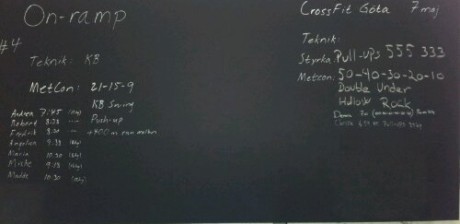 On-ramp
#4
Teknik: KB
MetCon: 21-15-9
KB Swing
Push-up
+400 m run mellan
Andrea 7:45
Rickard 8:28
Fredrik 8:20
Angelica 9:33
Maria 10:30
Micke 9:13
Madde 10:30
CrossFit Göta 7 maj
Teknik:
Styrka: Pull-ups 555 333
Metcon: 50-40-30-20-10
Double Under
Hollow Rock